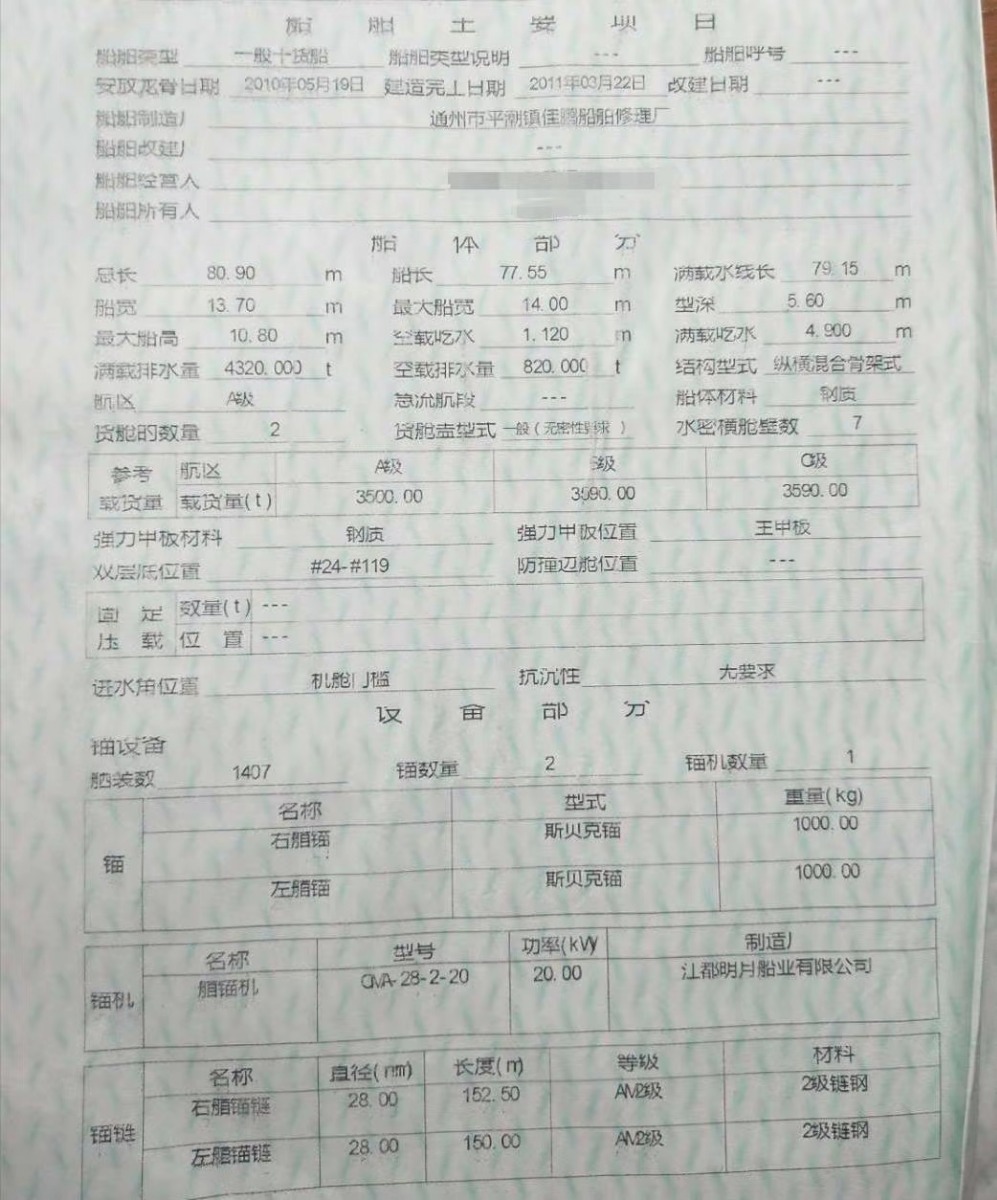 船舶主要项目
船舶类型 一般干货船 船舶类型说明 --- 船舶呼号 ---
安放龙骨日期 2010年05月19日 建造完工日期 2011年03月22日 改建日期 ---
船舶制造厂 通州市平潮镇佳腾船舶修理厂
船舶改建厂 ---
船舶经营人
船舶所有人
船体部分
总长 80.90 m 船长 77.55 m 满载水线长 79.15 m
船宽 13.70 m 最大船宽 14.00 m 型深 5.60 m
最大船高 10.80 m 空载吃水 1.120 m 满载吃水 4.900 m
满载排水量 4320.000 t 空载排水量 820.000 t 结构型式 纵横混合骨架式
航区 A级 急流航段 --- 船体材料 钢质
货舱的数量 2 货舱盖型式 一般(无密性要求) 水密横舱壁数 7
参考 航区 A级 B级 C级
载货量 载货量(t) 3500.00 3590.00 3590.00
强力甲板材料 钢质 强力甲板位置 主甲板
双层底位置 #24-#119 防撞边舱位置 ---
固定 数量(t) ---
压载 位置 ---
进水角位置 机舱门槛 抗沉性 无要求
设备部分
锚设备
舾装数 1407 锚数量 2 锚机数量 1
名称 型式 重量(kg)
锚 右艏锚 斯贝克锚 1000.00
左艏锚 斯贝克锚 1000.00
名称 型号 功率(kW) 制造厂
锚机 艏锚机 CMA-28-2-20 20.00 江都明月船业有限公司
名称 直径(mm) 长度(m) 等级 材料
锚链 右艏锚链 28.00 152.50 AM2级 2级链钢
左艏锚链 28.00 150.00 AM2级 2级链钢